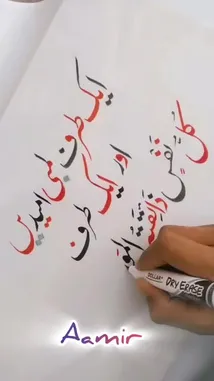 ایک طرف لمبی امیدیں
اور ایک طرف
كُلُّ نَفْسٍ
ذَائِقَةُ المَو
DOLLAR DRY ERASE
Aamir